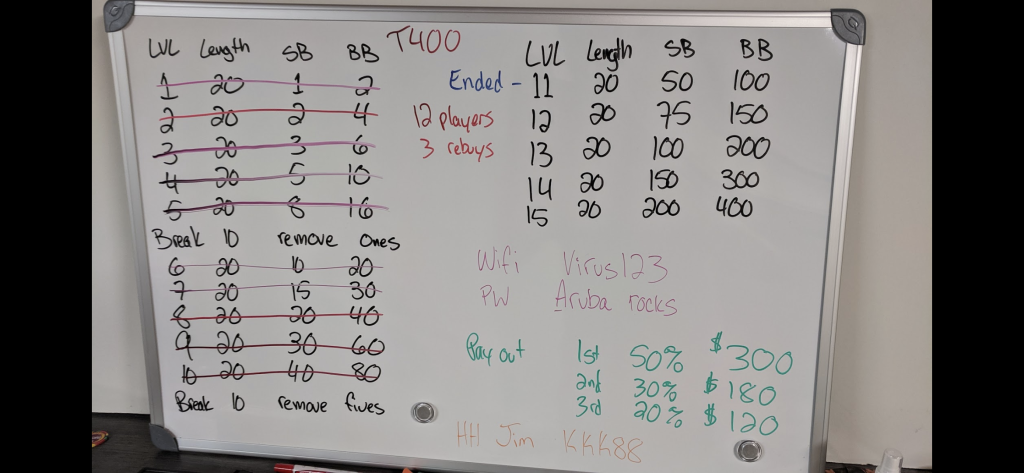 T400
LVL Length SB BB
1 20 1 2
2 20 2 4
3 20 3 6
4 20 5 10
5 20 8 16
Break 10 remove ones
6 20 10 20
7 20 15 30
8 20 20 40
9 20 30 60
10 20 40 80
Break 10 remove fives
12 players
3 rebuys
LVL Length SB BB
Ended - 11 20 50 100
12 20 75 150
13 20 100 200
14 20 150 300
15 20 200 400
Wifi Virus123
PW Aruba rocks
Pay out 1st 50% $300
2nd 30% $180
3rd 20% $120
HH Jim KKK88